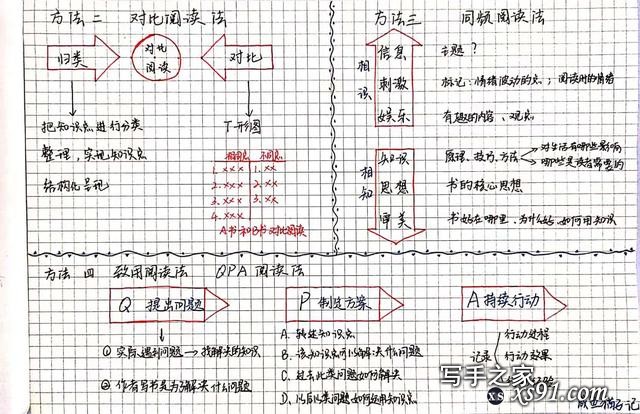 方法二 对比阅读法
归类
对比
阅读
对比
把知识点进行分类
整理,实现知识点
结构化呈现
T形图
相同点 不同点
1. xxx 1. xx
2. xxx 2. xx
3. xxx 3. xx
4. xxx
A书和B书对比阅读
方法三 同频阅读法
相识
信息
主题?
刺激
标记:情绪波动的点;阅读时的情绪
娱乐
有趣的内容、观点
相知
知识
原理、技巧、方法
对生活有哪些影响
哪些是读者需要的
思想
书的核心思想
审美
书好在哪里、为什么好、如何用知识
方法四 致用阅读法 QPA阅读法
Q 提出问题
① 实际遇到问题→找解决的知识
② 作者写书是为了解决什么问题
P 制定方案
A. 转述知识点
B. 该知识点可以解决什么问题
C. 过去此类问题如何解决
D. 以后此类问题如何运用知识点
A 持续行动
记录
行动过程
行动效果
写手之家
xs91.com
XS